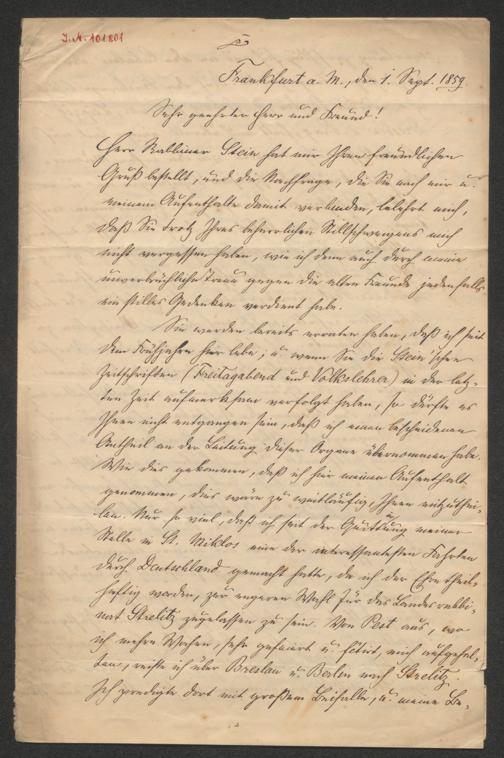 J.N. 101801
Frankfurt a. M., den 1. Sept. 1859.
Sehr geehrter Herr und Freund!
Herr Rabbiner Stein hat mir Ihren freundlichen
Gruß bestellt, und die Nachfrage, die Sie nach mir u.
meinem Aufenthalte damit verbinden, belehrt mich,
daß Sie trotz Ihres beharrlichen Stillschweigens mich
nicht vergessen haben, wie ich denn auch durch meine
unverbrüchliche Treue gegen die alten Freunde jedenfalls
ein stilles Gedenken verdient habe.
Sie werden bereits errathen haben, daß ich seit
dem Frühjahre hier lebe; u. wenn Sie die Stein'schen
Zeitschriften (Freitagabend und Volkslehrer) in der letz-
ten Zeit aufmerksam verfolgt haben, so dürfte es
Ihnen nicht entgangen sein, daß ich einen bescheidenen
Antheil an der Leitung dieser Organe übernommen habe.
Wie dies gekommen, daß ich hier meinen Aufenthalt
genommen, dies wäre zu weitläufig, Ihnen mitzuthei-
len. Nur so viel, daß ich seit der meiner
Stelle in St. Miklos eine der interessantesten Fahrten
durch Deutschland gemacht hatte, da ich der Ehre theil-
haftig worden, zur engeren Wahl für das Landesrabbi-
nat Strelitz zugelassen zu sein. Von Pest aus, wo
ich mehre Wochen, sehr gefeiert u. fêtirt, mich aufgehal-
ten, reiste ich über Breslau u. Berlin nach Strelitz.
Ich predigte dort mit großem Beifalle, u. meine Be-